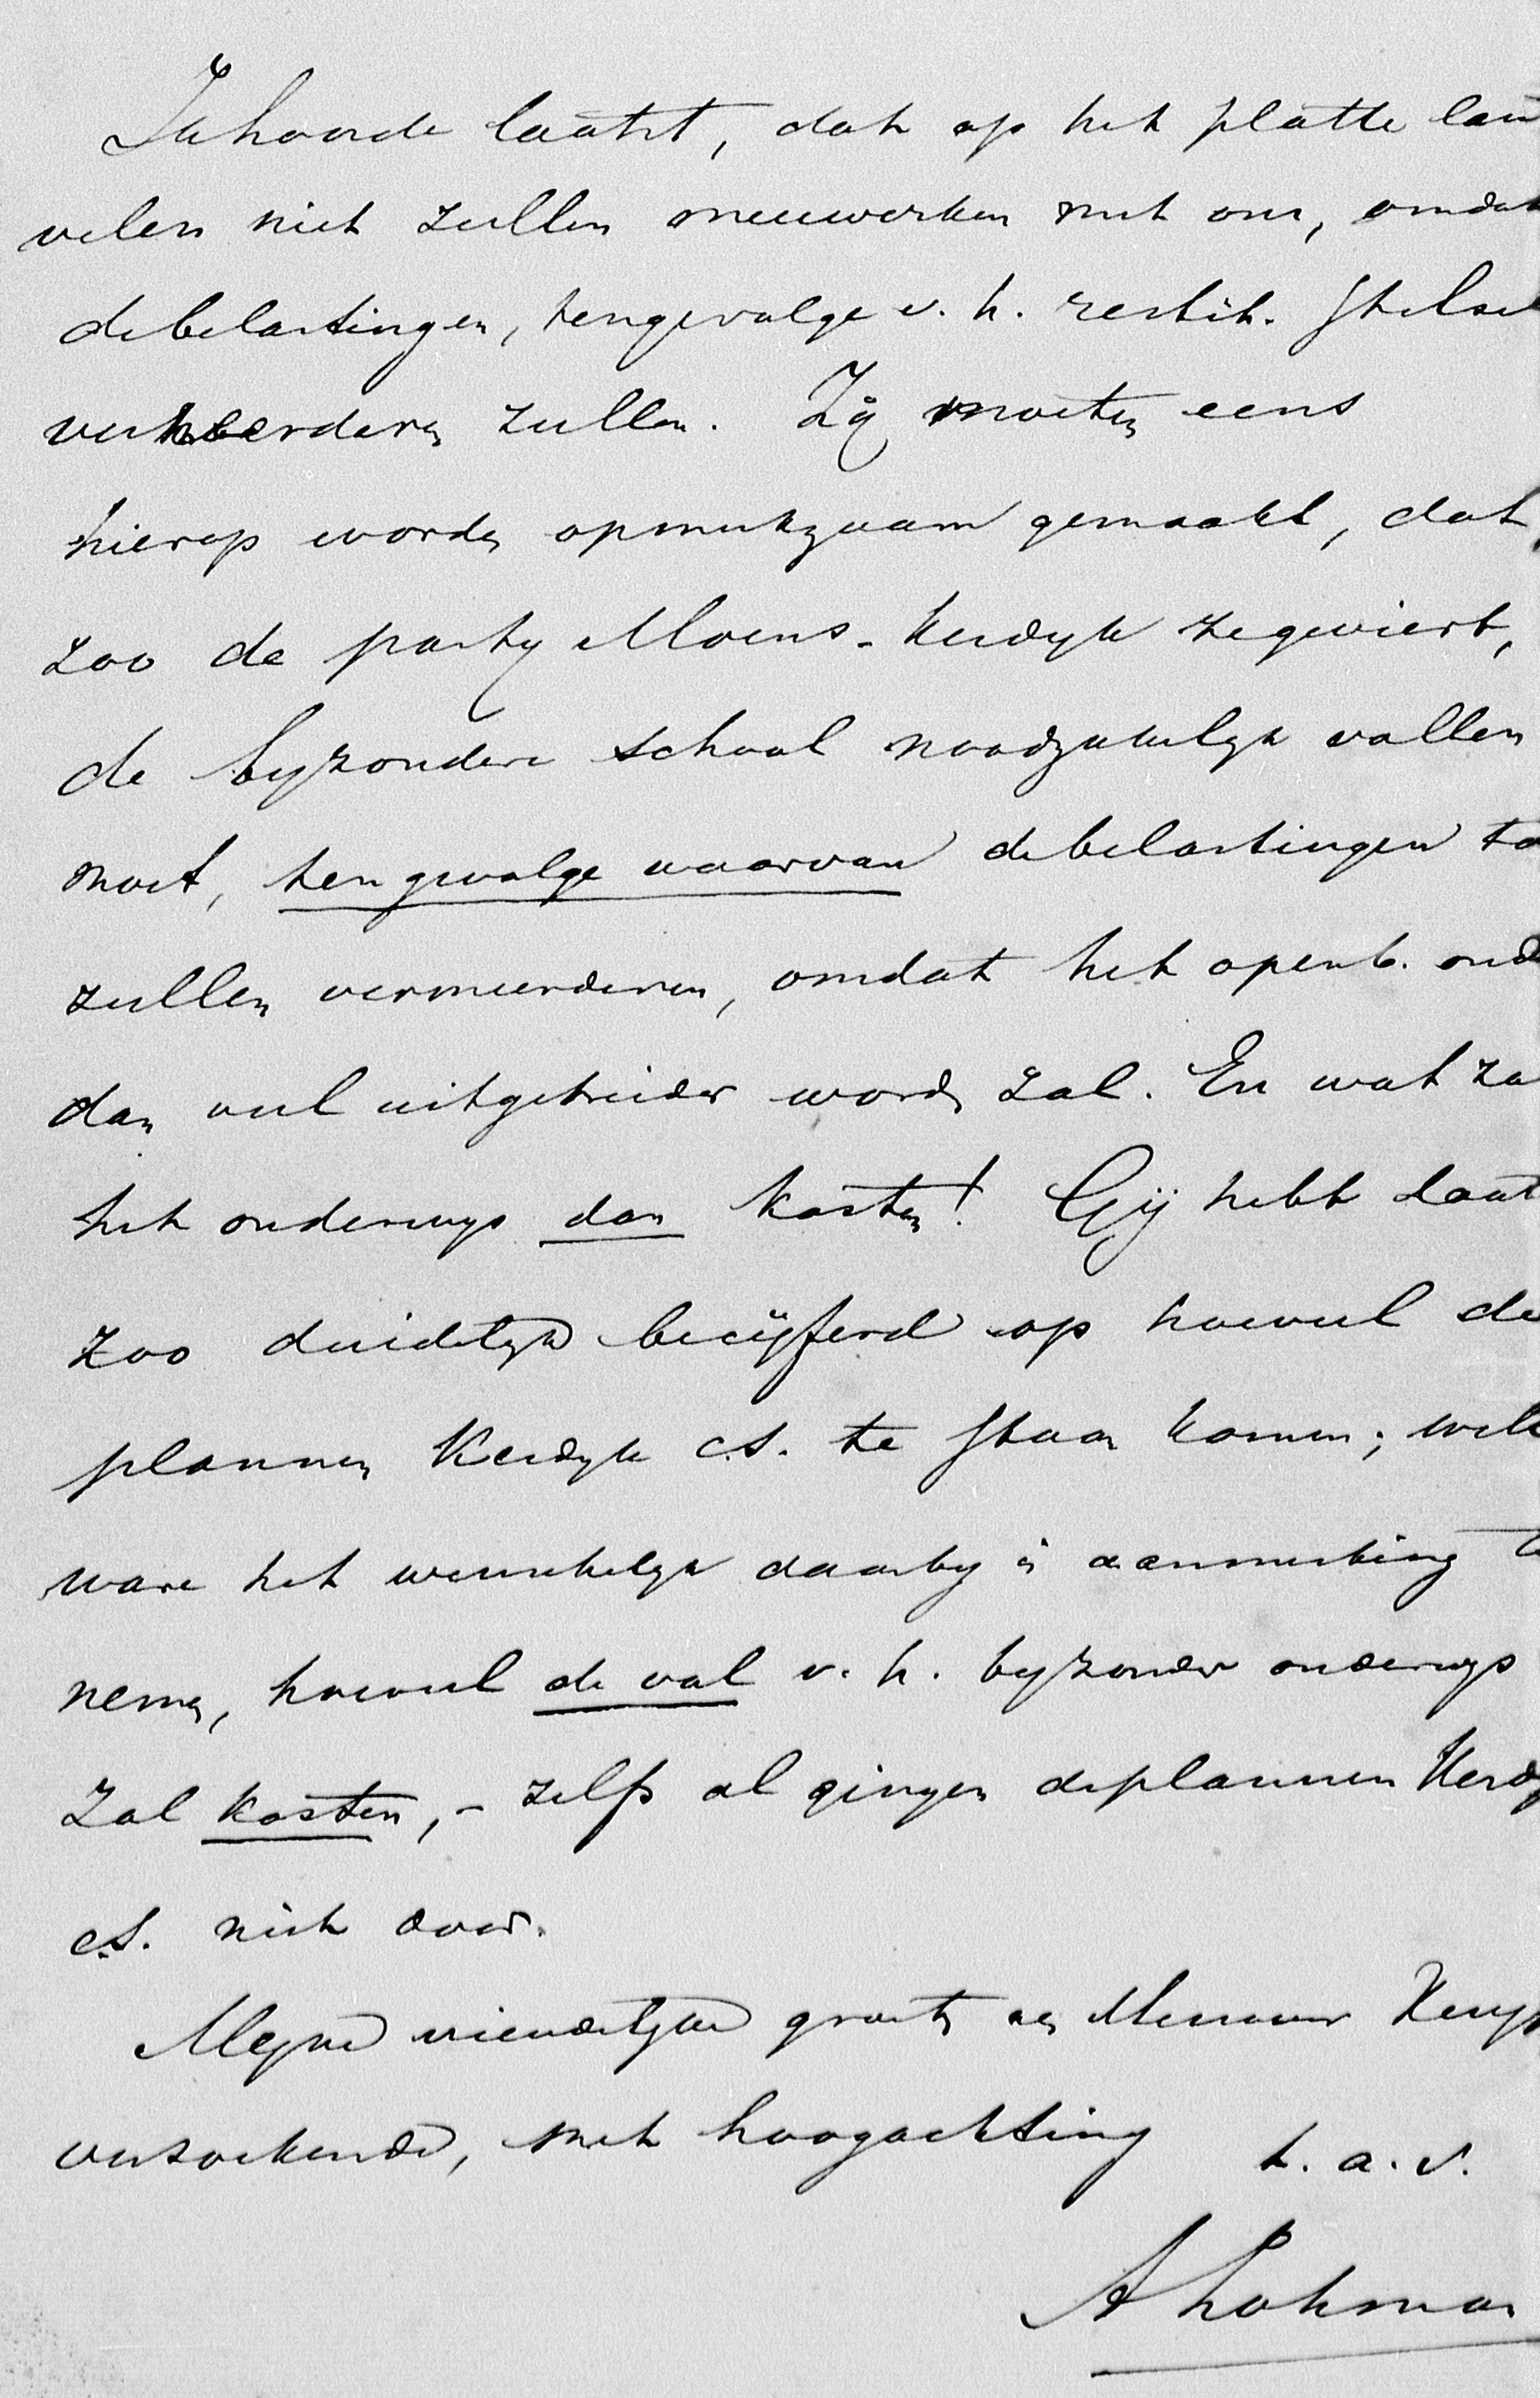 Ik hoorde laatst, dat op het platte lan
velen niet zullen meewerken met ons, omdat
de belastingen, tengevolge v. h. restit. stelse
vermeerderen zullen. Zij moeten eens
hierop worden opmerkzaam gemaakt, dat,
zoo de party Moens-Kerdyk zegeviert,
de byzondere school noodzakelyk vallen
moet, ten gevolge waarvan de belastingen to
zullen vermeerderen, omdat het openb. ond
dan veel uitgebreider worden zal. En wat za
het onderwys dan kosten! Gij hebt laat
zoo duidelyk becijferd op hoeveel de
plannen Kerdyk c.s. te staan komen; wel
ware het wenschelyk daarby in aanmerking te
nemen, hoeveel de val v. h. byzonder onderwys
zal kosten, - zelfs al gingen de plannen Kerdy
c.s. niet door.
Myne vriendelyke groeten aan Mevrouw Kuyp
verzoekende, met hoogachting t. a. v.
A Lohman